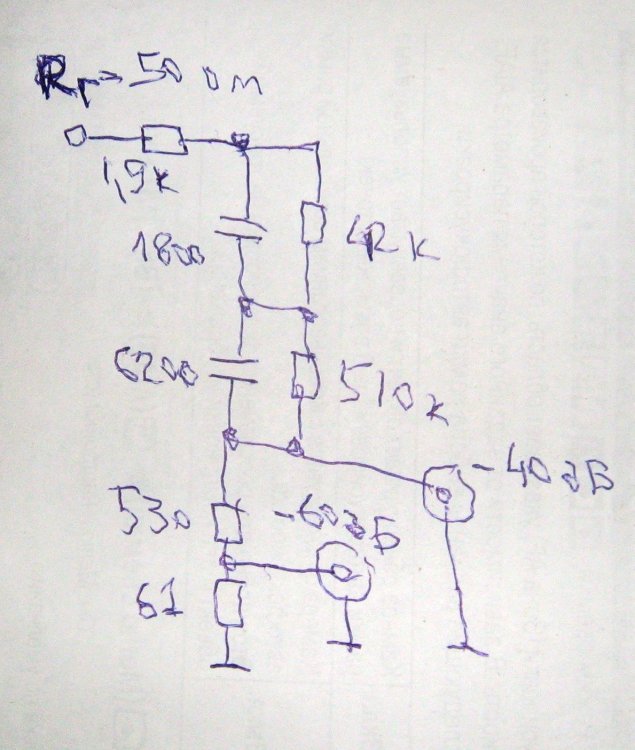 Rг = 50 ом
1,9к
1800
42к
6200
510к
-40дБ
530
-60дБ
61